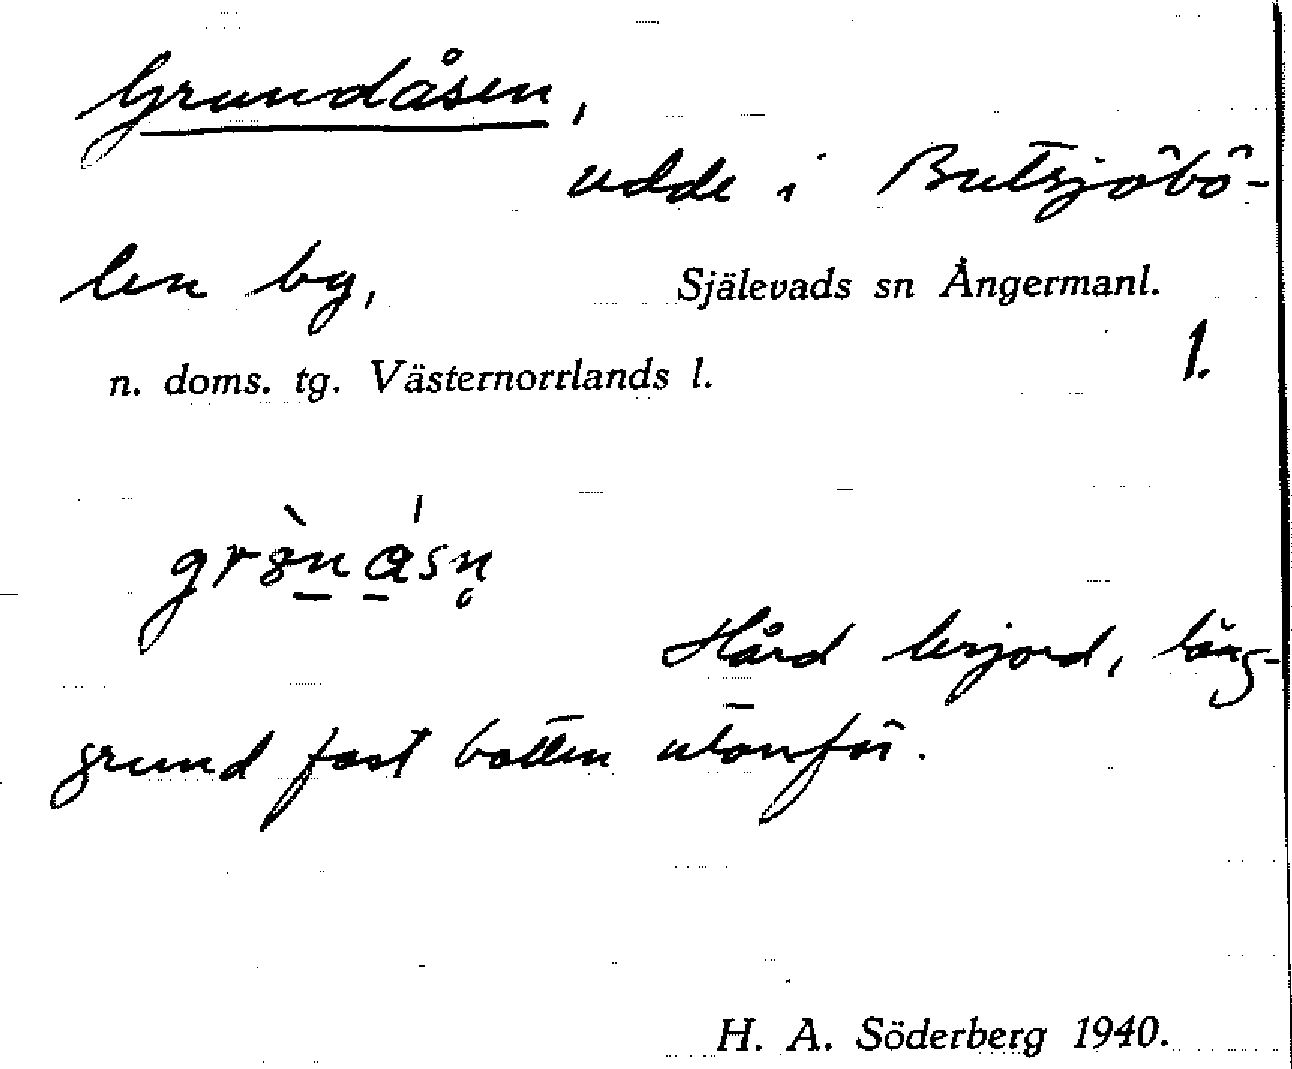 Grundåsen,
udde i Butsjöbö-
len by,
Själevads sn Ångermanl.
n. doms. tg. Västernorrlands l.
1.
Hård lerjord, lång-
grund fast botten utanför.
H. A. Söderberg 1940.